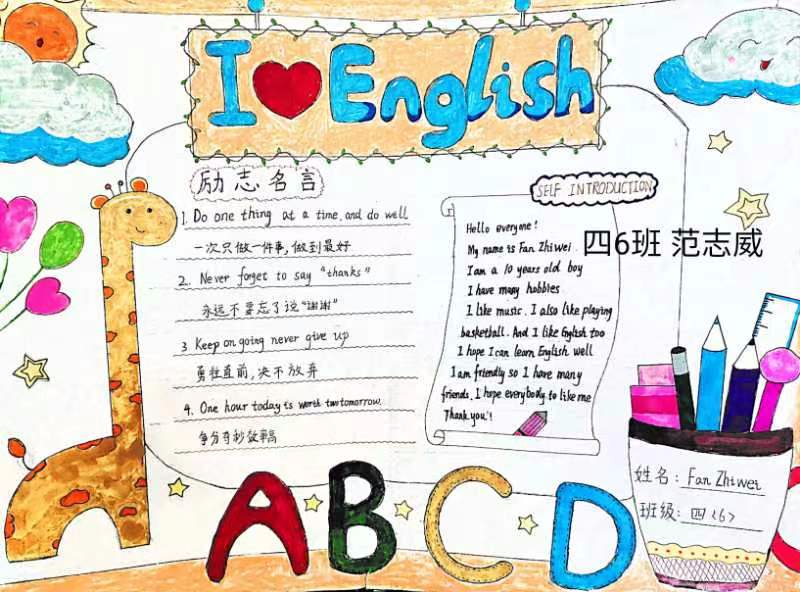 I ❤ English
励志名言
1. Do one thing at a time, and do well
一次只做一件事，做到最好
2. Never forget to say "thanks"
永远不要忘了说“谢谢”
3 Keep on going never give up
勇往直前，决不放弃
4. One hour today is worth two tomorrow.
争分夺秒效率高
SELF INTRODUCTION
Hello everyone!
My name is Fan Zhiwei
I am a 10 years old boy
I have many hobbies
I like music. I also like playing
basketball. And I like English too
I hope I can learn English well
I am friendly so I have many
friends. I hope everybody to like me
Thank you!
四6班 范志威
姓名：Fan Zhiwei
班级：四<6>
A B C D